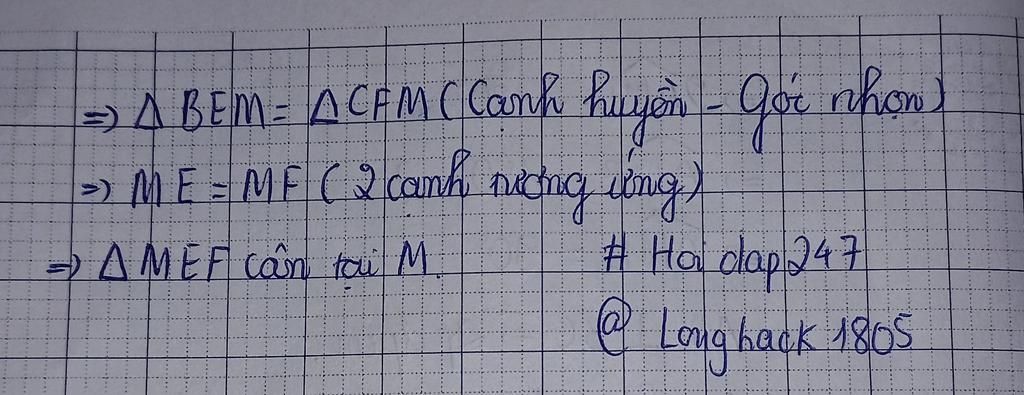 => Δ BEM = Δ CFM (Cạnh huyền - góc nhọn)
=> ME = MF (2 cạnh tương ứng)
=> Δ MEF cân tại M.
# Hoidap247
@ Longhack1805